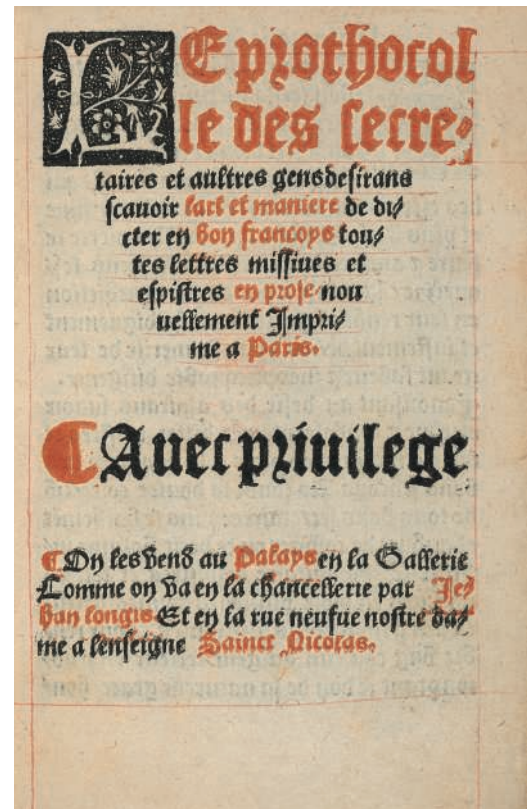 LE prothocol
le des secre-
taires et aultres gens desirans
scavoir lart et maniere de di-
cter en bon francoys tou-
tes lettres missiues et
espistres en prose nou
uellement Impri-
me a Paris.
¶ Auec priuilege
¶ On les vend au Palays en la Gallerie
Comme on va en la chancellerie par Je-
han longis Et en la rue neufue nostre da-
me a lenseigne Sainct Nicolas.